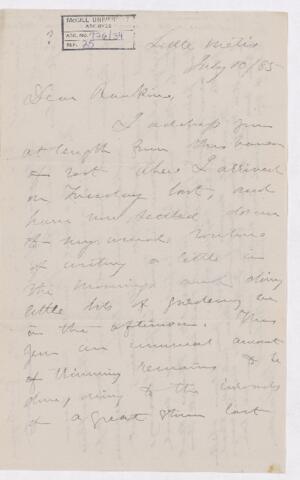 McGILL UNIVERSITY
ARCHIVES
ACC. NO. 726/34
REF. 25
Little Metis
July 10/85
Dear Rankine,
I address you
at length from this haven
of rest where I arrived
on Tuesday last, and
have now settled down
to my usual routine
of writing a little in
the mornings and doing
little bits of gardening in
in the afternoon. This
year an unusual amount
of thinning remains to be
done, owing to the inroads
of a great storm last